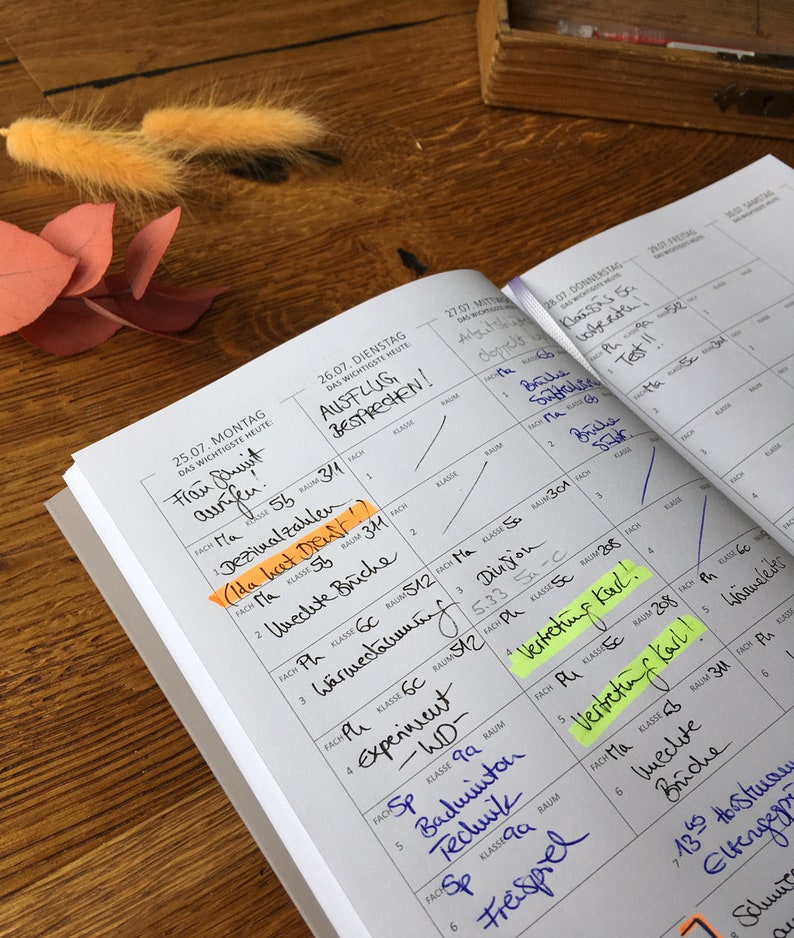 25.07. MONTAG
DAS WICHTIGSTE HEUTE:
Frau Schmit
anrufen!
FACH Ma KLASSE 5b RAUM 311
1 Dezimalzahlen
(Ida hat Dienst!)
FACH Ma KLASSE 5b RAUM 311
2 Unechte Brüche
FACH Ph KLASSE 6c RAUM 512
3 Wärmedämmung
FACH Ph KLASSE 6c RAUM 512
4 Experiment
-WD-
FACH Sp KLASSE 9a RAUM
5 Badminton
Technik
FACH Sp KLASSE 9a RAUM
6 Freispiel
26.07. DIENSTAG
DAS WICHTIGSTE HEUTE:
AUSFLUG
BESPRECHEN!
FACH KLASSE RAUM
1
FACH KLASSE RAUM
2
FACH Ma KLASSE 5a RAUM 301
3 Division
S.33 5a-c
FACH Ph KLASSE 5c RAUM 208
4 Vertretung Karl!
FACH Ph KLASSE 5c RAUM 208
5 Vertretung Karl!
FACH Ma KLASSE 5b RAUM 311
6 Unechte
Brüche
7 13 45 Horstmann
Elterngesprä
8
27.07. MITTWO
DAS WICHTIGSTE HEUTE:
doppelt
FACH Ma KLASSE 6b
1 Brüche
FACH Ma KLASSE 6b
2 Brüche
FACH KLASSE
3
FACH KLASSE
4
FACH Ph KLASSE 6c
5
FACH Ph KLASSE
6
28.07. DONNERSTAG
DAS WICHTIGSTE HEUTE:
5c
vorbereiten!
FACH Ph KLASSE 9a RAUM 512
1 Test!!
FACH Ma KLASSE 5c RAUM 301
2
FACH KLASSE RAUM
3
FACH KLASSE
4
29.07. FREITAG
DAS WICHTIGSTE HEUTE:
FACH KLASSE RAUM
1
FACH
2
30.07. SAMSTAG
DAS WICHTIGSTE HEUTE: